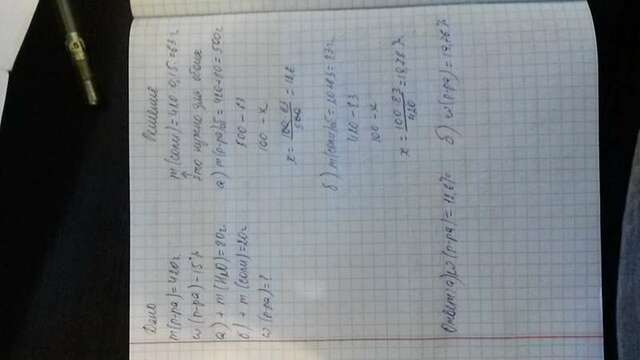 Дано
m(р-ра)=420г
w(р-ра)-15%
а) + m(H₂O)=80г
б) + m(соли)=20г
w(р-ра)=?
Решение
m(соли)=420·0,15=63г
↑
это нужно для обоих
а) m(р-ра)об=420+80=500г
500-63
100-x
x=100·63/500=12,6
б) m(соли)об=20+63=83г
420-83
100-x
x=100·83/420=19,76%
Ответ: а) w(р-ра)=12,6%
б) w(р-ра)=19,76%